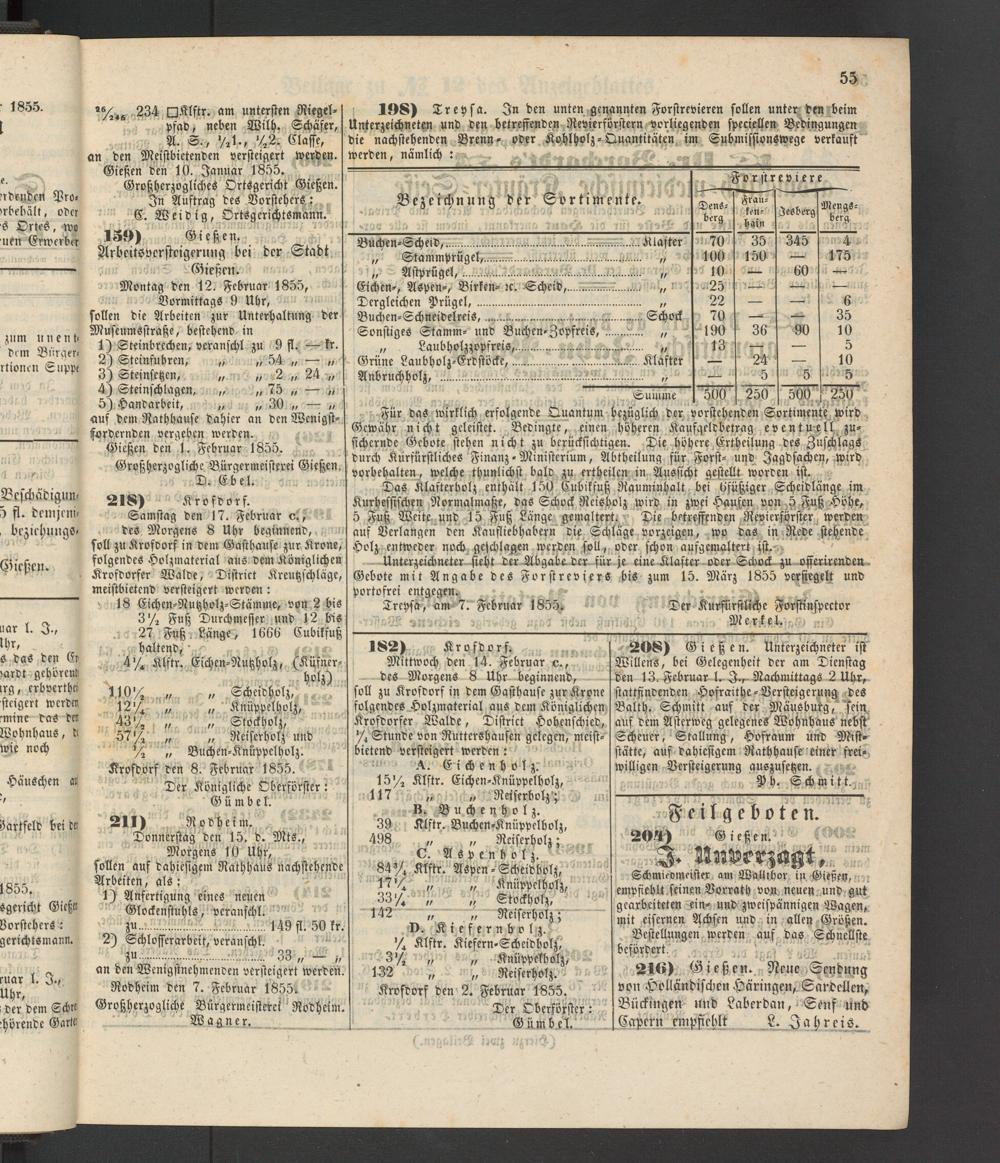 55
²⁶/₂₄₆ 234 □Klftr. am untersten Riegel-
pfad, neben Wilh. Schäfer,
A. S., ½1., ½2. Classe,
an den Meistbietenden versteigert werden.
Gießen den 10. Januar 1855.
Großherzogliches Ortsgericht Gießen.
In Auftrag des Vorstehers:
C. Weidig, Ortsgerichtsmann.
159) Gießen.
Arbeitsversteigerung bei der Stadt
Gießen.
Montag den 12. Februar 1855,
Vormittags 9 Uhr,
sollen die Arbeiten zur Unterhaltung der
Museumstraße, bestehend in
1) Steinbrechen, veranschl zu 9 fl. — kr.
2) Steinfuhren, „ „ 54 — „
3) Steinsetzen, „ „ 2 „ 24 „
4) Steinschlagen, „ „ 75 — „
5) Handarbeit, „ „ 30 „ — „
auf dem Rathhause dahier an den Wenigst-
fordernden vergeben werden.
Gießen den 1. Februar 1855.
Großherzogliche Bürgermeisterei Gießen.
D. Ebel.
218) Krofdorf.
Samstag den 17. Februar c.,
des Morgens 8 Uhr beginnend,
soll zu Krofdorf in dem Gasthause zur Krone,
folgendes Holzmaterial aus dem Königlichen
Krofdorfer Walde, District Kreutzschläge,
meistbietend versteigert werden:
18 Eichen-Nutzholz-Stämme, von 2 bis
3½ Fuß Durchmesser und 12 bis
27 Fuß Länge, 1666 Cubikfuß
haltend,
4¼ Klftr. Eichen-Nutzholz, (Küfner-
holz)
110½ „ „ Scheidholz,
12¼ „ „ Knüppelholz,
43½ „ „ Stockholz,
57½ „ „ Reiserholz und
½ „ Buchen-Knüppelholz.
Krofdorf den 8. Februar 1855.
Der Königliche Oberförster:
Gümbel.
211) Rodheim.
Donnerstag den 15. d. Mts.,
Morgens 10 Uhr,
sollen auf dahiesigem Rathhaus nachstehende
Arbeiten, als:
1) Anfertigung eines neuen
Glockenstuhls, veranschl.
zu 149 fl. 50 kr.
2) Schlosserarbeit, veranschl.
zu 33 „ — „
an den Wenigstnehmenden versteigert werden.
Rodheim den 7. Februar 1855.
Großherzogliche Bürgermeisterei Rodheim.
Wagner.
198) Treysa. In den unten genannten Forstrevieren sollen unter den beim
Unterzeichneten und den betreffenden Revierförstern vorliegenden speciellen Bedingungen
die nachstehenden Brenn- oder Kohlholz-Quantitäten im Submissionswege verkauft
werden, nämlich:
Bezeichnung der Sortimente. Forstreviere
Densberg Frankenhain Jesberg Mengsberg
Buchen-Scheid, Klafter 70 35 345 4
„ Stammprügel, „ 100 150 — 175
„ Astprügel, „ 10 — 60 —
Eichen-, Aspen-, Birken- ꝛc. Scheid, „ 25 — — —
Dergleichen Prügel, „ 22 — — 6
Buchen-Schneidelreis, Schock 70 — — 35
Sonstiges Stamm- und Buchen-Zopfreis, „ 190 36 90 10
„ Laubholzzopfreis, „ 13 — — 5
Grüne Laubholz-Erdstöcke, Klafter — 24 — 10
Anbruchholz, „ — 5 5 5
Summe 500 250 500 250
Für das wirklich erfolgende Quantum bezüglich der vorstehenden Sortimente wird
Gewähr nicht geleistet. Bedingte, einen höheren Kaufgeldbetrag eventuell zu-
sichernde Gebote stehen nicht zu berücksichtigen. Die höhere Ertheilung des Zuschlags
durch Kurfürstliches Finanz-Ministerium, Abtheilung für Forst- und Jagdsachen, wird
vorbehalten, welche thunlichst bald zu ertheilen in Aussicht gestellt worden ist.
Das Klafterholz enthält 150 Cubikfuß Rauminhalt bei 6füßiger Scheidlänge im
Kurhessischen Normalmaße, das Schock Reisholz wird in zwei Haufen von 5 Fuß Höhe,
5 Fuß Weite und 15 Fuß Länge gemaltert. Die betreffenden Revierförster werden
auf Verlangen den Kaufliebhabern die Schläge vorzeigen, wo das in Rede stehende
Holz entweder noch geschlagen werden soll, oder schon aufgemaltert ist.
Unterzeichneter sieht der Abgabe der für je eine Klafter oder Schock zu offerirenden
Gebote mit Angabe des Forstreviers bis zum 15. März 1855 versiegelt und
portofrei entgegen.
Treysa, am 7. Februar 1855. Der Kurfürstliche Forstinspector
Merkel.
182) Krofdorf.
Mittwoch den 14. Februar c.,
des Morgens 8 Uhr beginnend,
soll zu Krofdorf in dem Gasthause zur Krone
folgendes Holzmaterial aus dem Königlichen
Krofdorfer Walde, District Hohenschied,
¼ Stunde von Ruttershausen gelegen, meist-
bietend versteigert werden:
A. Eichenholz.
15½ Klftr. Eichen-Knüppelholz,
117 „ „ Reiserholz;
B. Buchenholz.
39 Klftr. Buchen-Knüppelholz,
498 „ „ Reiserholz;
C. Aspenholz.
84¾ Klftr. Aspen-Scheidholz,
17¼ „ „ Knüppelholz,
33¼ „ „ Stockholz,
142 „ „ Reiserholz;
D. Kiefernholz.
¼ Klftr. Kiefern-Scheidholz,
3½ „ „ Knüppelholz,
132 „ „ Reiserholz.
Krofdorf den 2. Februar 1855.
Der Oberförster:
Gümbel.
208) Gießen. Unterzeichneter ist
Willens, bei Gelegenheit der am Dienstag
den 13. Februar l. J., Nachmittags 2 Uhr,
stattfindenden Hofraithe-Versteigerung des
Balth. Schmitt auf der Mäusburg, sein
auf dem Asterweg gelegenes Wohnhaus nebst
Scheuer, Stallung, Hofraum und Mist-
stätte, auf dahiesigem Rathhause einer frei-
willigen Versteigerung auszusetzen.
Ph. Schmitt.
Feilgeboten.
204) Gießen.
J. Unverzagt,
Schmiedmeister am Wallthor in Gießen,
empfiehlt seinen Vorrath von neuen und gut
gearbeiteten ein- und zweispännigen Wagen,
mit eisernen Achsen und in allen Größen.
Bestellungen werden auf das Schnellste
befördert.
216) Gießen. Neue Sendung
von Holländischen Häringen, Sardellen,
Bückingen und Laberdan, Senf und
Capern empfiehlt L. Jahreis.